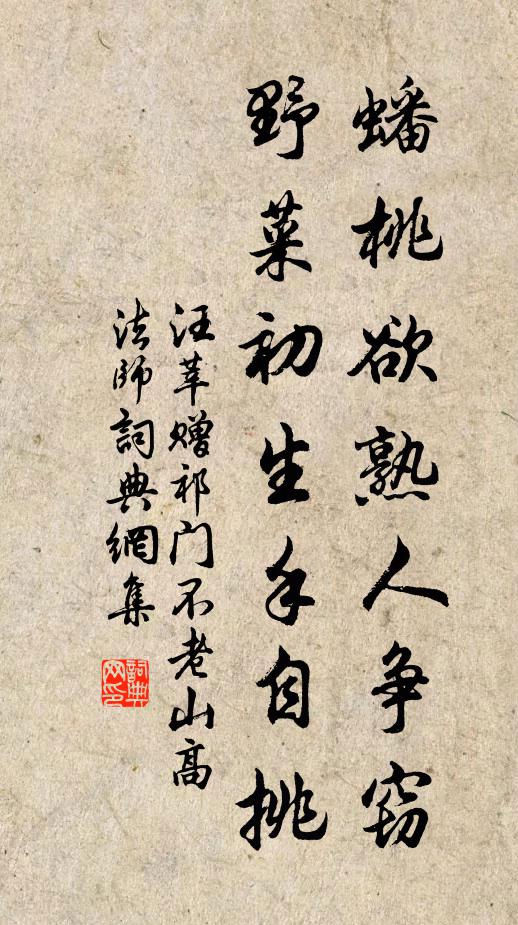 蟠桃欲熟人争窃
野菜初生手自挑
汪莘赠祁门不老山高
法师詞典網集
詞典网印